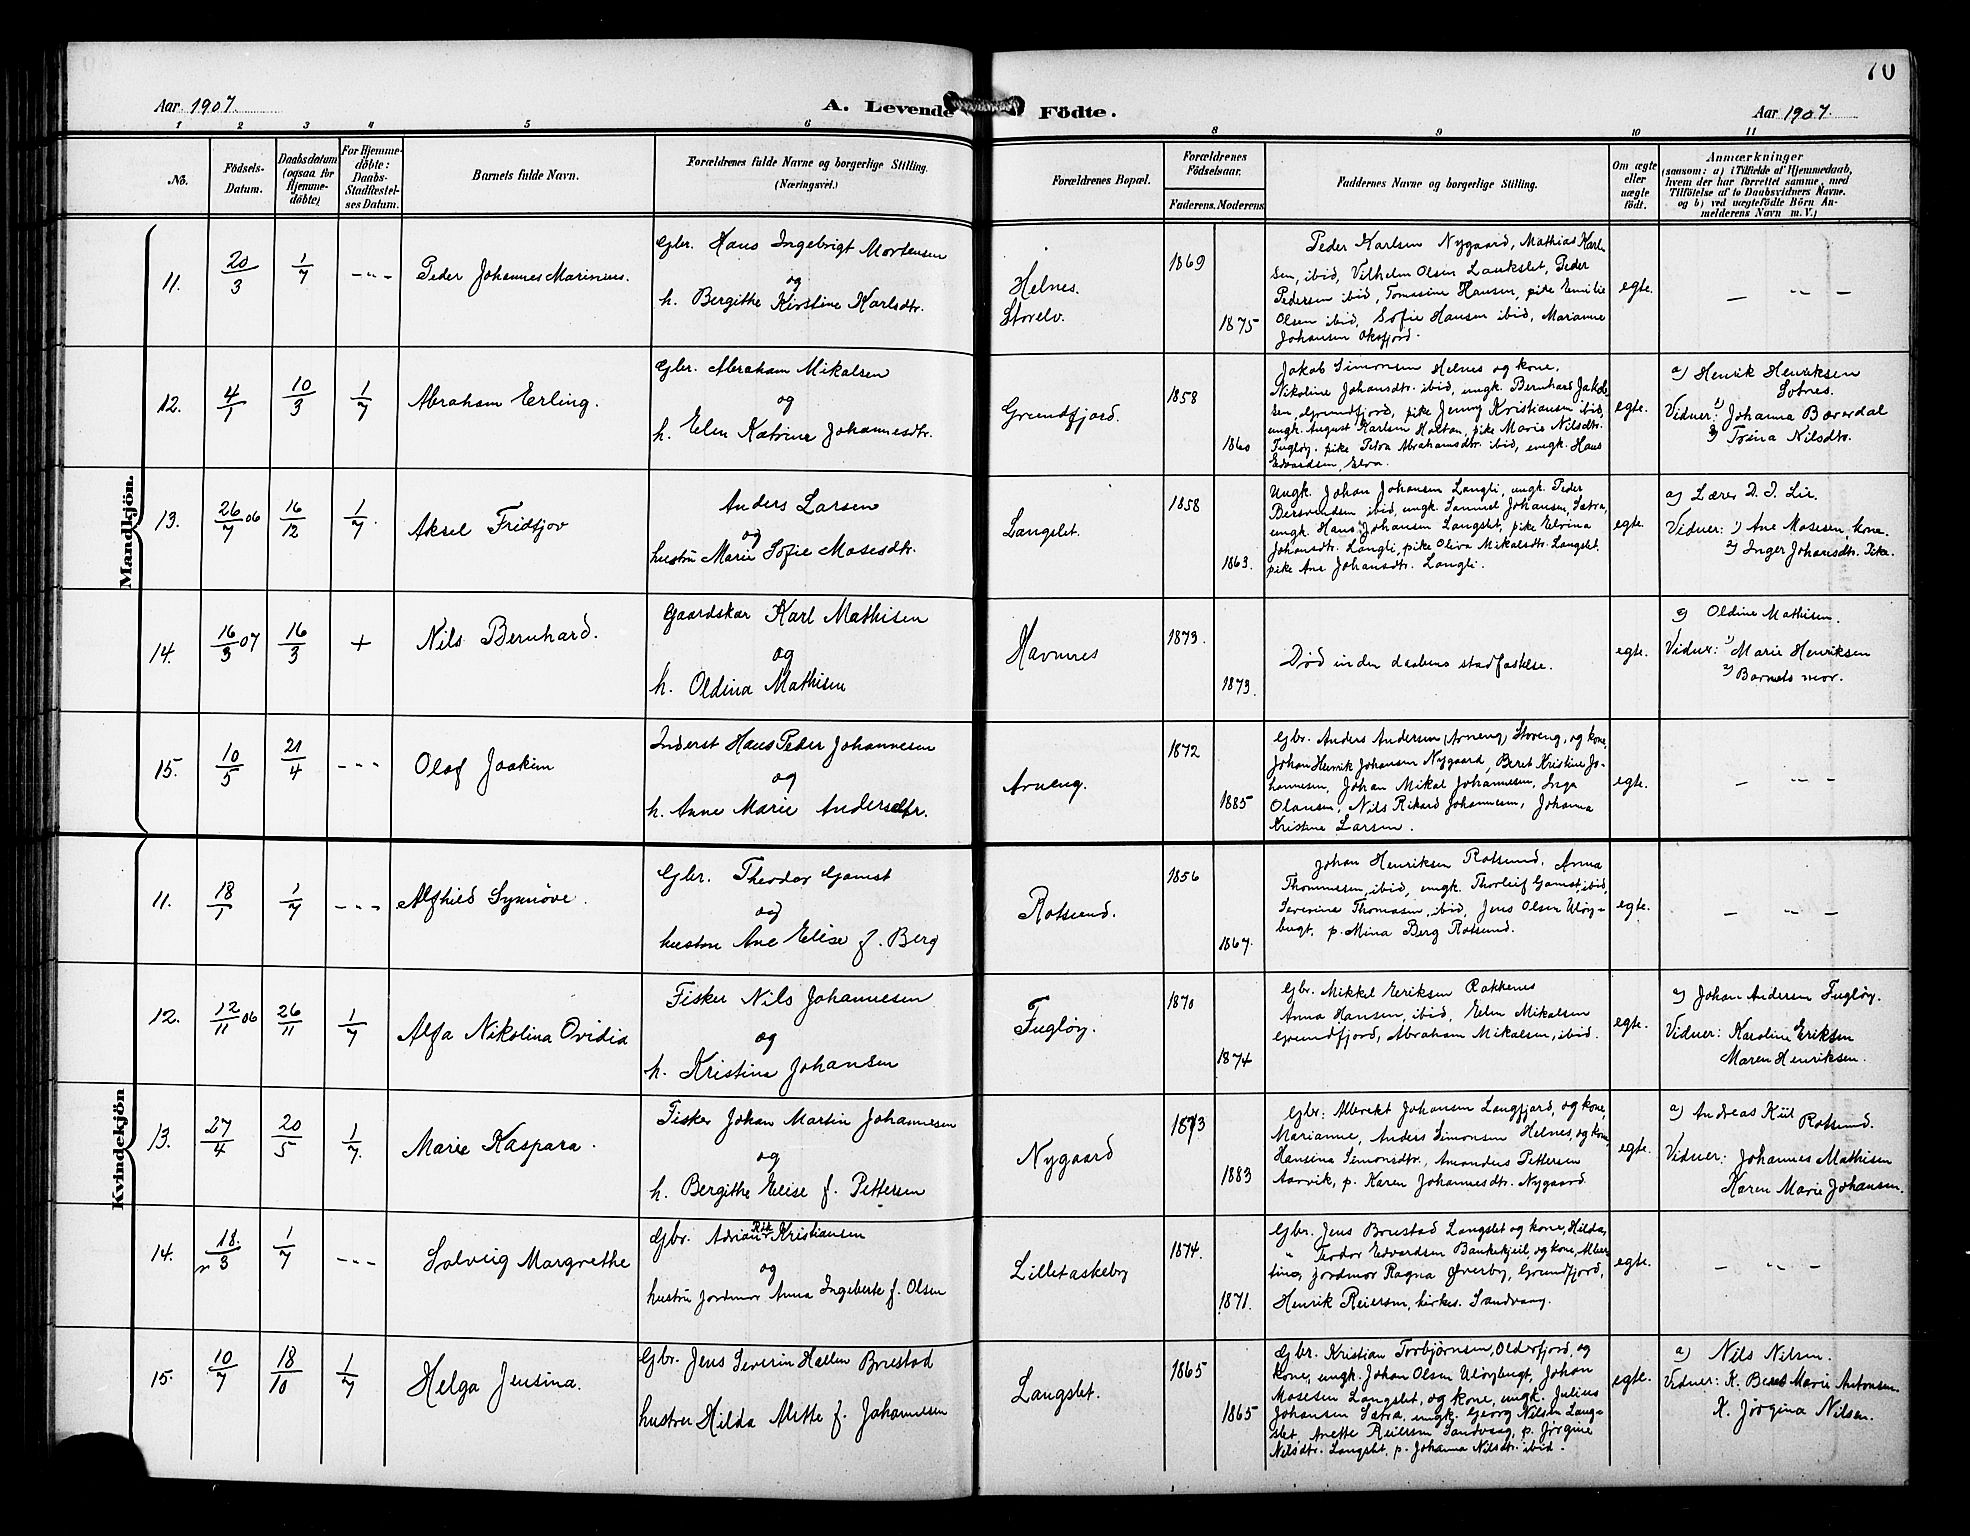 70
Aar 1907.
A. Levende Födte.
Aar 1907.
1 2 3 4 5 6 8 9 10 11
No.
Födsels-
Datum.
Daabsdatum
(ogsaa for
Hjemme-
döbte)
For Hjemme-
döbte:
Daabs-
Stadfæstel-
ses Datum.
Barnets fulde Navn.
Forældrenes fulde Navne og borgerlige Stilling.
(Næringsvei.)
Forældrenes Bopæl.
Forældrenes
Födselsaar.
Faderens. Moderens.
Faddernes Navne og borgerlige Stilling.
Om ægte
eller
uægte
födt.
Anmærkninger
(saasom: a) i Tilfælde af Hjemmedaab,
hvem der har forrettet samme, med
Tilföielse af to Daabsvidners Navne.
og b) ved uægtefödte Börn An-
melderens Navn m. V.)
Mandkjön.
11.
20/3
1/7
- - -
Peder Johannes Marinius.
Gbr. Hans Ingebrigt Mortensen
og
h. Bergithe Kirstine Karlsdtr.
Helnes.
Storelv.
1869
1875
Peder Karlsen Nygaard, Mathias Karl-
sen, ibid, Vilhelm Olsen Lankslet, Peder
Pedersen ibid, Tomasine Hansen, pike Emilie
Olsen ibid, Sofie Hansen ibid, Marianne
Johansen Oksfjord.
egte.
— " —
12.
4/1
10/3
1/7
Abraham Erling.
Gbr. Abraham Mikalsen
og
h. Elen Katrine Johannesdtr.
Grundfjord.
1858
1860
Jakob Simonsen Helnes og kone,
Nikoline Johansdtr. ibid, ungk. Bernhard Jakob-
sen, Grundfjord, pike Jenny Kristiansen ibid,
ungk. August Karlsen Hortan, pike Marie Nilsdtr.
Fugløy, pike Petra Abrahamsdtr. ibid, ungk. Hans
Edvardsen, Elva.
egte.
a) Henrik Henriksen
Sotnes.
Vidner: 1) Johanna Bæverdal
2) Trina Nilsdtr.
13.
26/7 06
16/12
1/7.
Aksel Fridtjov
Anders Larsen
og
hustru Marie Sofie Mosesdtr.
Langslet.
1858
1863.
Ungk. Johan Johansen Langli, ungk. Peder
Bersvendsen ibid, ungk. Samuel Johansen, Sætra,
ungk. Hans Johansen Langslet, pike Elvina
Johansdtr. Langli, pike Oliva Mikalsdtr. Langslet.
pike Ane Johansdtr. Langli.
egte.
a) Lærer D. I. Lie.
Vidner: 1) Ane Mosesen, kone.
2) Inger Johansdtr. Pike.
14.
16/3 07
16/3
+
Nils Bernhard.
Gaardskar Karl Mathisen
og
h. Oldina Mathisen
Havnnes
1873.
1873.
Død inden daabens stadfæstelse.
egte.
a) Oldine Mathisen.
Vidner: 1) Marie Henriksen
2) Barnets mor.
15.
10/5
21/4
- - -
Olaf Joakim
Inderst Hans Peder Johannesen
og
h. Anne Marie Andersdtr.
Arneng.
1872
1885
Gbr. Anders Andersen (Arneng) Storeng, og kone,
Johan Henrik Johansen Nygaard, Beret Kristine Jo-
hannesen, Johan Mikal Johannesen, Inga
Olausen, Nils Rikard Johannesen, Johanna
Kristine Larsen.
egte.
— " —
Kvindekjön
11.
18/1
1/7
- - -
Alfhild Synnöve.
Gbr. Theodor Gamst
og
hustru Ane Elise f. Berg
Rotsund.
1856
1867.
Johan Henriksen Rotsund. Anna
Thommesen, ibid, ungk. Thorleif Gamst, ibid,
Severine Thomasen, ibid, Jens Olsen Uløy-
bugt, p. Mina Berg Rotsund.
egte.
— " —
12.
12/11 06
26/11
1/7
Alfa Nikolina Ovidia
Fisker Nils Johannesen
og
h. Kristina Johansen
Fugløy.
1870
1874
Gbr. Mikkel Eriksen Rakkenes
Anna Hansen, ibid, Elen Mikalsen
Grundfjord, Abraham Mikalsen, ibid.
egte.
a) Johan Andersen Fugløy.
Vidner: Karoline Eriksen
Maren Henriksen.
13.
27/4
20/5
1/7.
Marie Kaspara.
Fisker Johan Martin Johannesen
og
h. Bergithe Elise f. Pettersen
Nygaard
1873
1883
Gbr. Albrekt Johansen Langfjord, og kone,
Marianne, Anders Simonsen Helnes, og kone,
Hansina Simonsdtr., Amandus Pettersen
Aarvik, p. Karen Johannesdtr. Nygaard.
egte.
a) Andreas Kiil
Rotsund.
Vidner: Johannes Mathisen
Karen Marie Johansen.
14.
18./3
1/7
- - -
Solveig Margrethe
Gbr. Adrian Rik Kristiansen
og
hustru Jordmor Anna Ingeberte f. Olsen
Lilletaskeby
1874.
1871.
Gbr. Jens Brustad Langslet og kone, Hilda,
" Teodor Edvardsen Bankekjeil, og kone, Alber-
tina, jordmor Ragna Øverby, Grundfjord,
Henrik Reiersen, kirkes. Sandvaag.
egte.
— " —
15.
10/7
18/10
1/7
Helga Jensina.
Gbr. Jens Severin Hallen Brustad
hustru Hilda Mette f. Johannesen
Langslet.
1865
1865
Gbr. Kristian Torbjørnsen, Olderfjord, og
kone, ungk. Johan Olsen Uløybugt, Johan
Mosesen Langslet, og kone, ungk. Julius
Johansen Sætra, ungk. Georg Nilsen Lang-
slet, Anette Reiersen Sandvaag, p. Jørgine
Nilsdtr. Langslet, p. Johanna Nilsdtr. ibid.
egte.
a) Nils Nilsen.
Vidner: K. Beret Marie Antonsen.
K. Jörgina Nilsen.